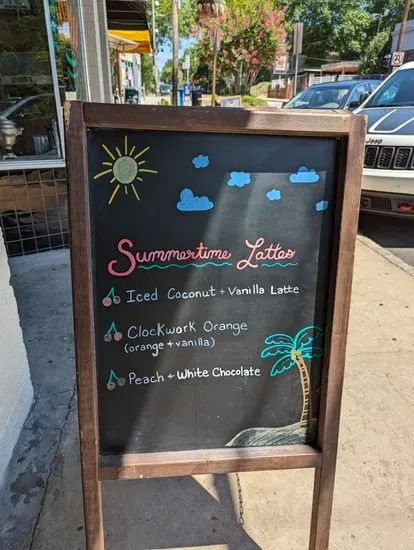 Summertime Lattes
Iced Coconut + Vanilla Latte
Clockwork Orange
(orange + vanilla)
Peach + White Chocolate
Jeep